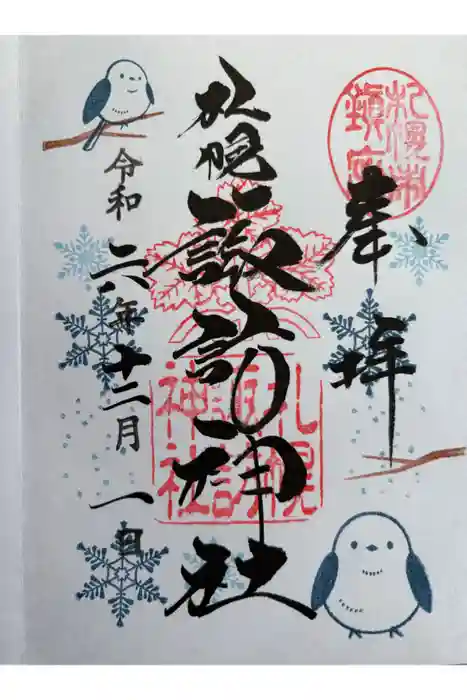 札幌市
鎮座
奉拝
札幌諏訪神社
札幌
諏訪
神社
令和六年十二月一日